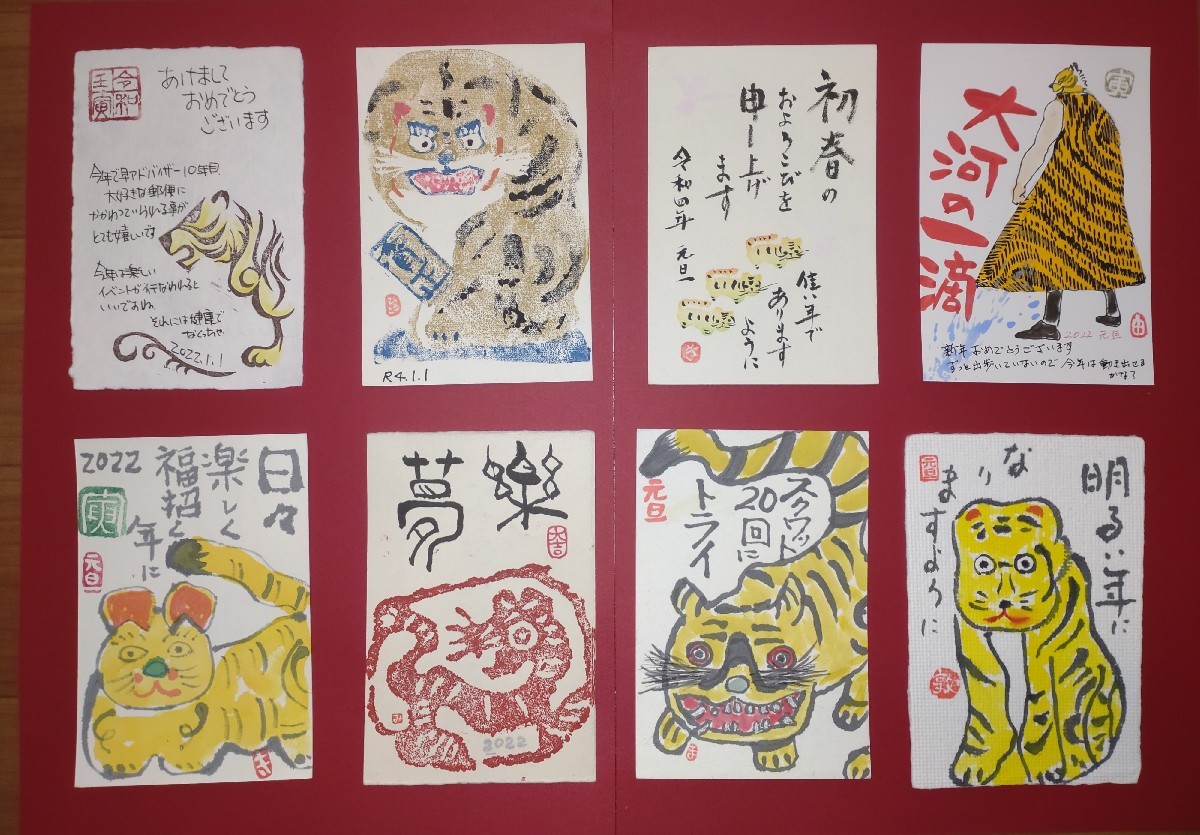 令和
壬寅
あけまして
おめでとう
ございます
今年で早アドバイザー10年目
大好きな郵便に
かかわっていられる事が
とても嬉しいです
今年は楽しい
イベントが行なわれると
いいですね
それには健康で
なくっちゃ
2022.1.1
R4.1.1
初春の
およろこびを
申し上げ
ます
令和四年 元旦
佳い年で
あります
ように
寅
大河の一滴
2022 元旦
新年おめでとうございます
ずっと出歩いていないので 今年は動き出せる
かなて
日々
楽しく
福招く
年に
2022
寅
元旦
さ
樂
夢
大吉
み
2022
スクワット
20回に
トライ
元旦
明るい年に
なり
ますように
元旦